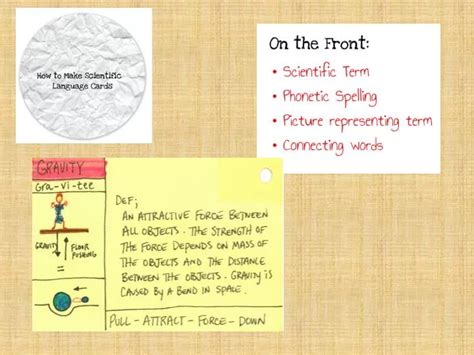 How to Make Scientific
Language Cards
On the Front:
• Scientific Term
• Phonetic Spelling
• Picture representing term
• Connecting words
GRAVITY
Gra-vi-tee
GRAVITY
FLOOR
PUSHING
=
DEF;
AN ATTRACTIVE FORCE BETWEEN
ALL OBJECTS. THE STRENGTH OF
THE FORCE DEPENDS ON MASS OF
THE OBJECTS AND THE DISTANCE
BETWEEN THE OBJECTS. GRAVITY IS
CAUSED BY A BEND IN SPACE.
PULL - ATTRACT - FORCE - DOWN